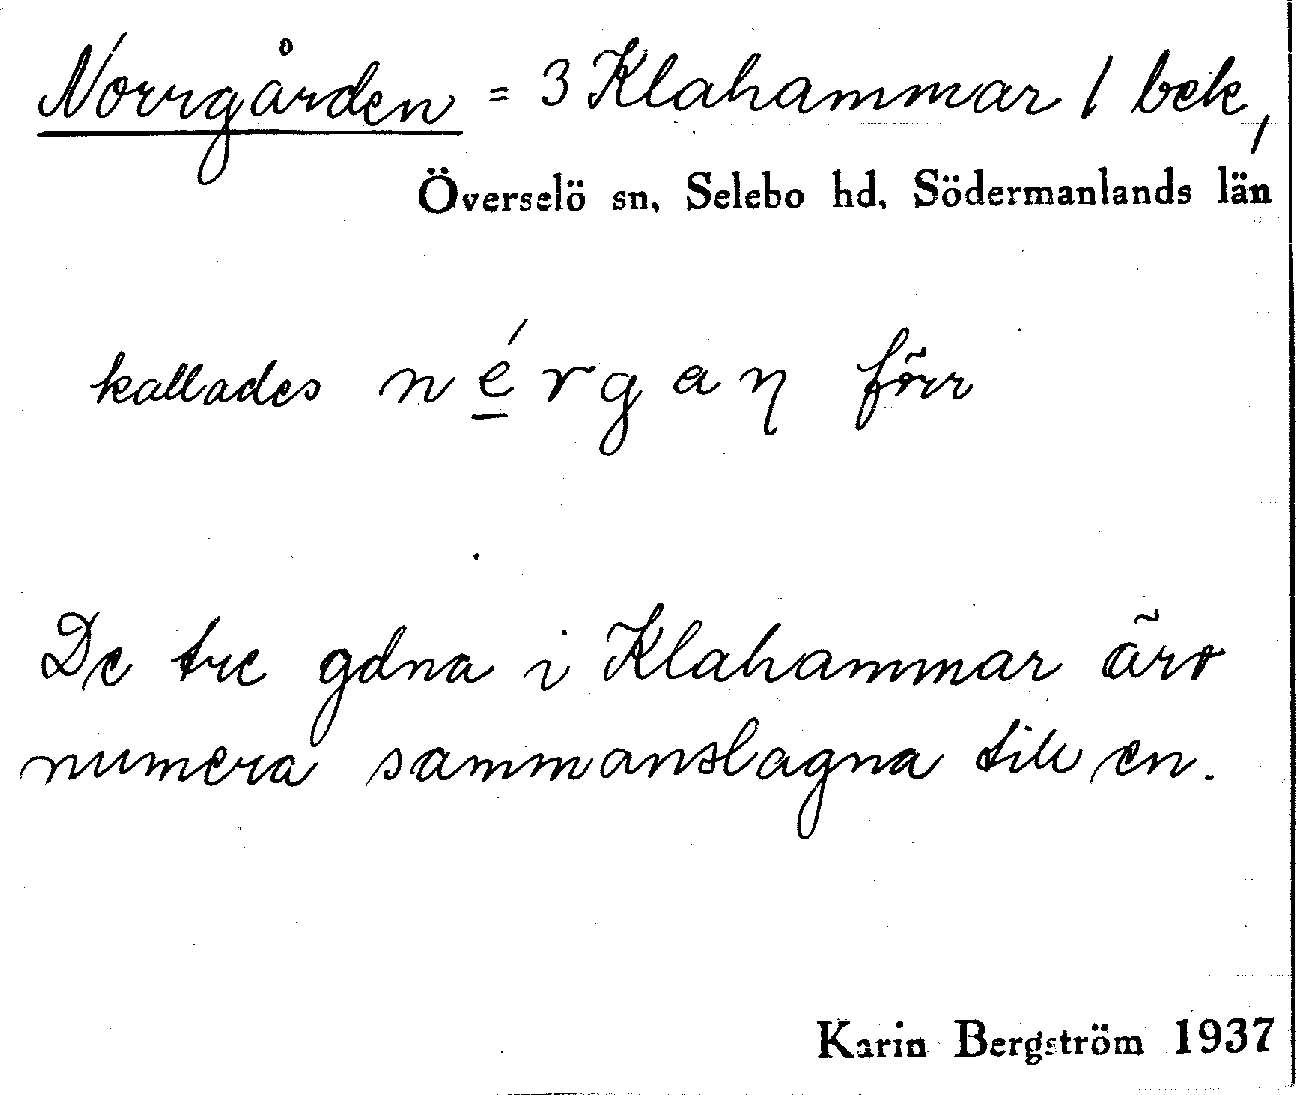 Norrgården = 3 Klahammar / bek,
Överselö sn, Selebo hd, Södermanlands län
kallades né̲rgaꞃ förr
De tre gdna i Klahammar äro
numera sammanslagna till en.
Karin Bergström 1937